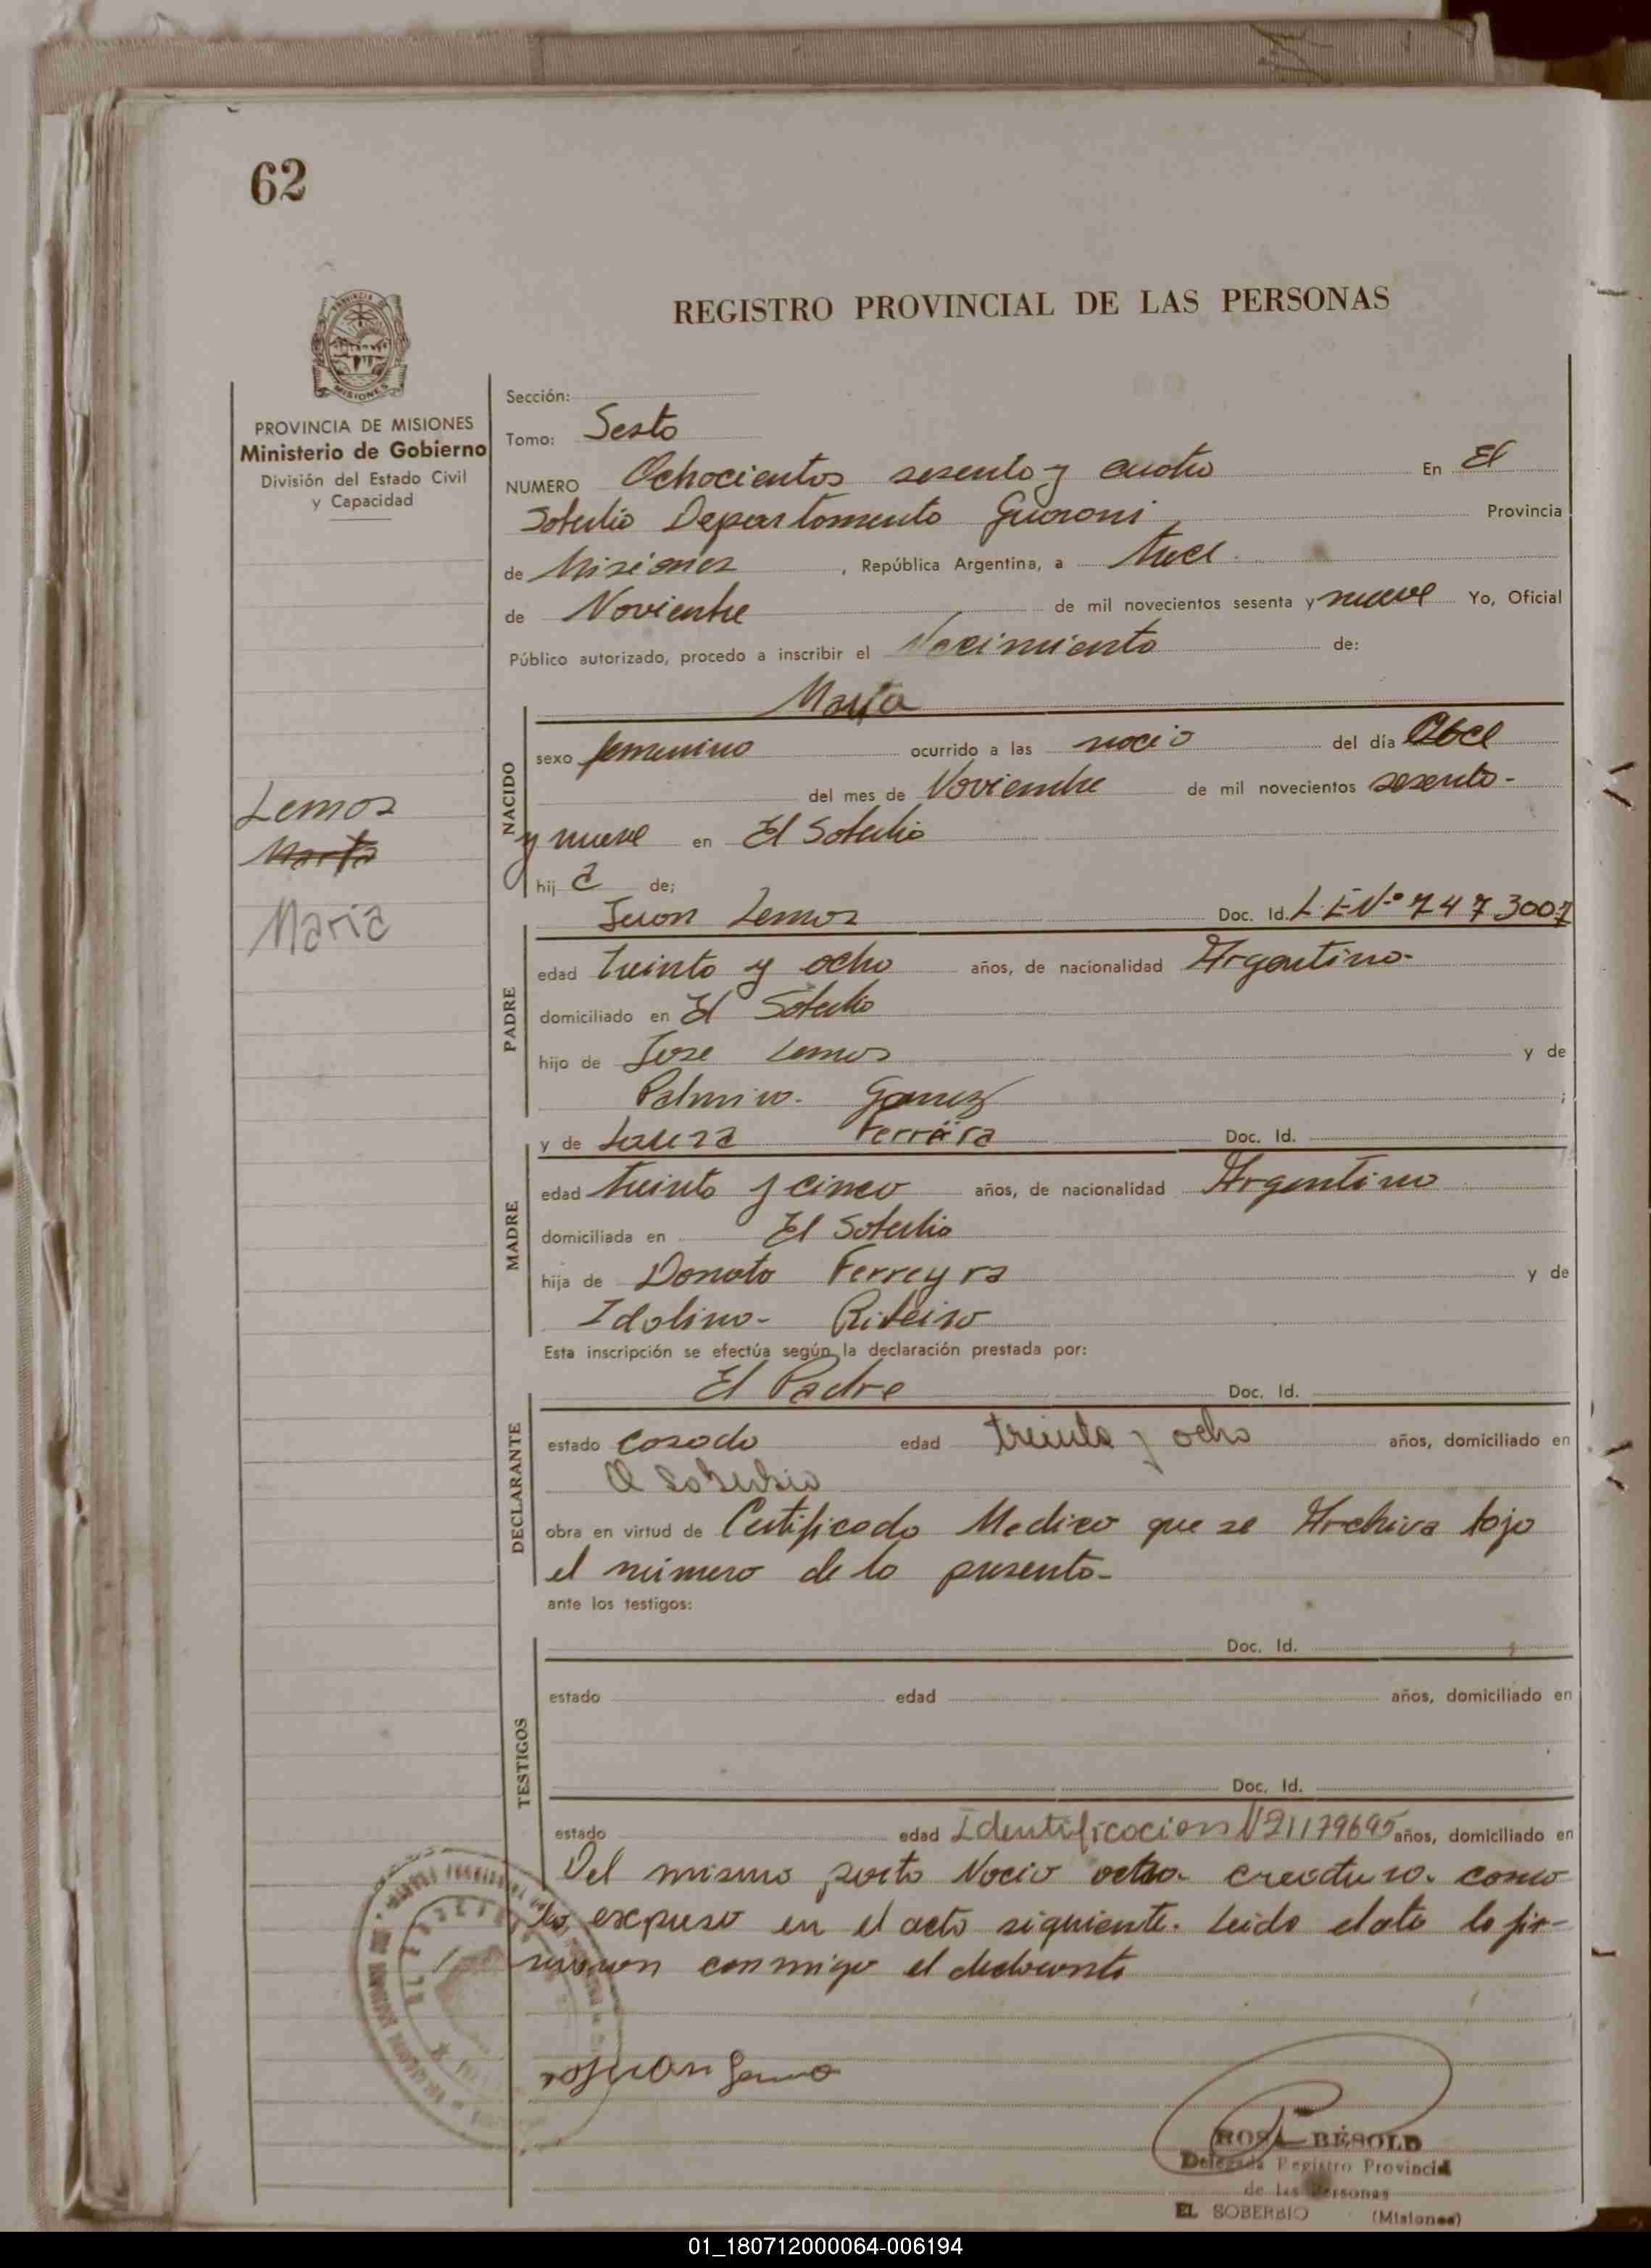 62
REGISTRO PROVINCIAL DE LAS PERSONAS
MISIONES
PROVINCIA DE MISIONES
Ministerio de Gobierno
División del Estado Civil
y Capacidad
Lemos
Marta
Maria
Sección:
Tomo: Sesto
NUMERO Ochocientos sesenta y cuatro En El
Soberbio Departamento Guarani Provincia
de Misiones, República Argentina, a trece
de Noviembre de mil novecientos sesenta y nueve Yo, Oficial
Público autorizado, procedo a inscribir el Nacimiento de:
Maria
NACIDO
sexo femenino ocurrido a las nacio del día Once
del mes de Noviembre de mil novecientos sesenta-
y nueve en El Soberbio
hij a de;
PADRE
Juan Lemos Doc. Id. L.E.Nº 7473007
edad treinta y ocho años, de nacionalidad Argentino-
domiciliado en El Soberbio
hijo de Jose Lemos y de
Palmira- Gomez ;
MADRE
y de Laura Ferreira Doc. Id.
edad treinta y cinco años, de nacionalidad Argentina
domiciliada en El Soberbio
hija de Donato Ferreyra y de
Idolina- Ribeiro
Esta inscripción se efectúa según la declaración prestada por:
DECLARANTE
El Padre Doc. Id.
estado casado edad treinta y ocho años, domiciliado en
El Soberbio
obra en virtud de Certificado Medico que se Archiva bajo
el número de la presente-
ante los testigos:
TESTIGOS
Doc. Id.
estado edad años, domiciliado en
Doc. Id.
estado edad Identificacion N21179695 años, domiciliado en
Del mismo parto Nacio otra- creatura- como
lo expuso en el acto siguiente. Leido el ata la fir-
maron conmigo el declarante
Juan
ROSA BESOLD
Delegada Registro Provincial
de las Personas
EL SOBERBIO (Misiones)
01_180712000064-006194